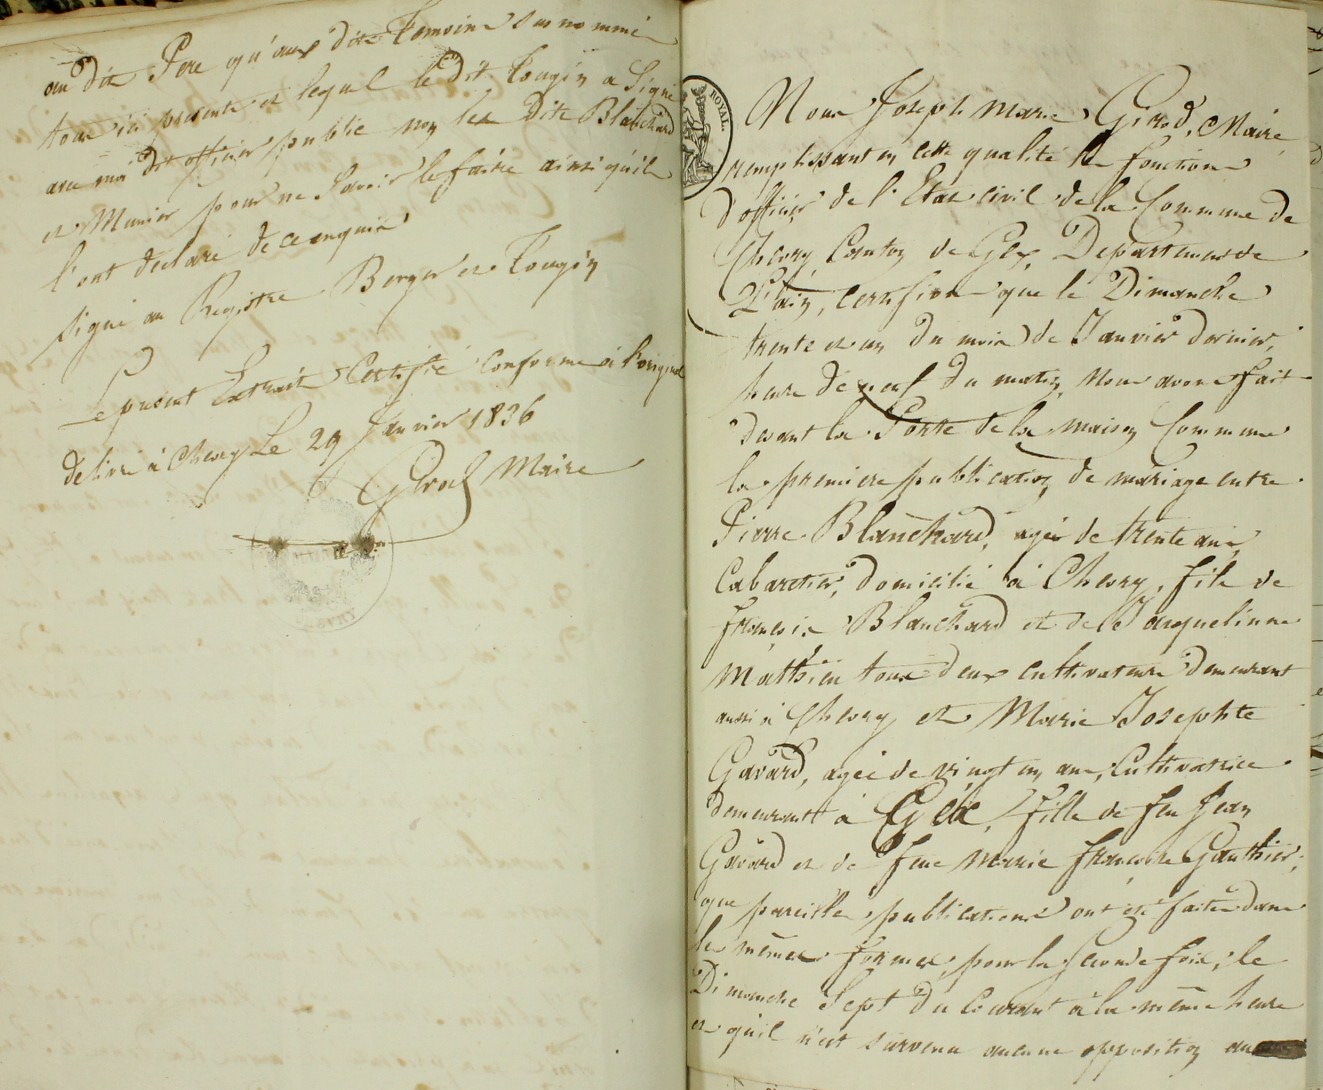 au dit Pere qu'aux dits temoins sus nommé
tous ici present et lequel le dit Tougin a Signé
avec moi dit officier public non les dits Blanchard
et Munier pour ne Savoir le faire ainsi qu'il
l'ont declaré de ce enquis
signé au Registre Berger et Tougin
Le present Extrait Certifié conforme à l'original
délivré à Chevry Le 29 Janvier 1836
Girod Maire
ROYAL.
Nous Joseph Marie Girod, Maire,
remplissant en cette qualité les fonctions
d'officier de l'Etat civil de la Commune de
Chevry, Canton de Gex, Departement de
L'ain, certifions que le Dimanche
trente et un du mois de Janvier dernier,
heure de neuf du matin, Nous avons fait
devant la Porte de la maison Commune
la premiere publication de mariage entre
Pierre Blanchard, agé de trente ans,
Cabaretier, domicilié à Chevry, fils de
françois Blanchard et de Jacquelinne
Mathieu tous deux cultivateurs demeurant
aussi à Chevry et Marie Josephte
Gavard, agée de vingt un ans, Cultivatrice
demeurant à Gex, fille de feu Jean
Gavard et de feue Marie françoise Gauthier;
que pareilles publications ont été faites dans
les mêmes formes, pour la seconde fois, le
Dimanche Sept du Courant à la même heure
et qu'il n'est survenu aucune opposition au